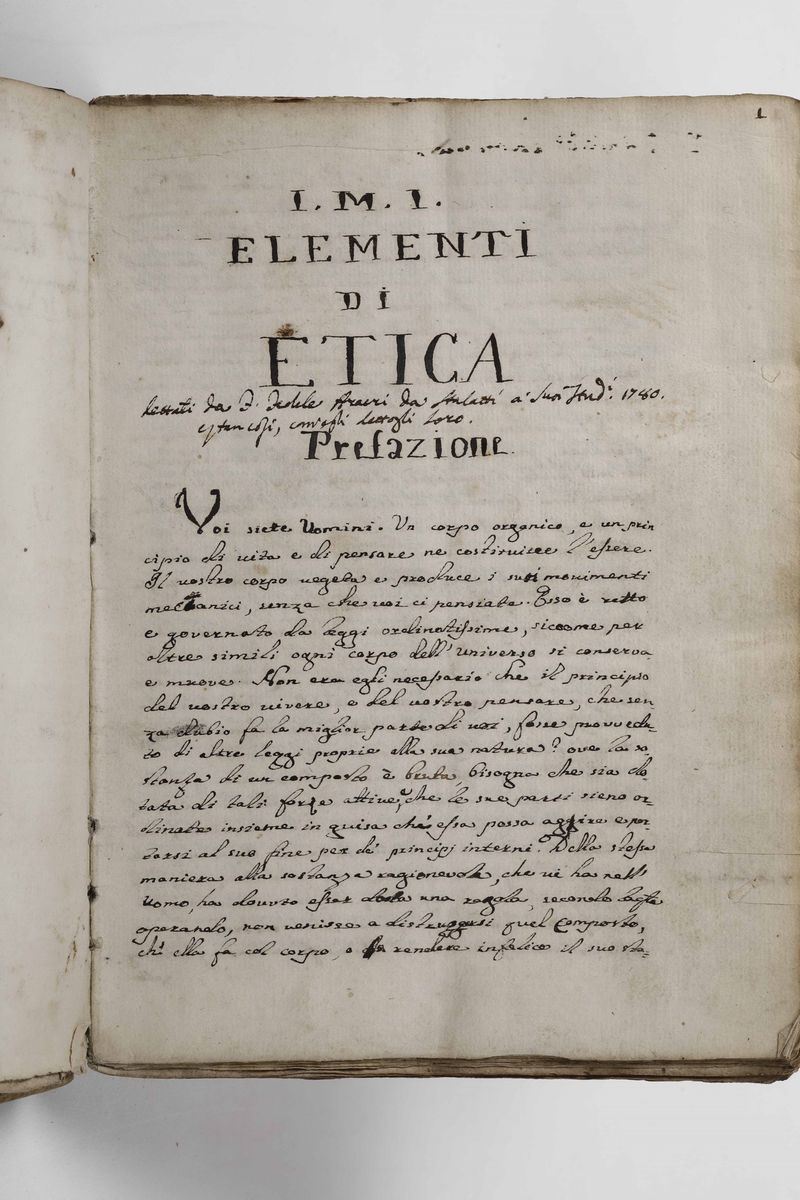 1
I. M. I.
ELEMENTI
DI
ETICA
dettati da D. Fedele da a' suoi Stud.ⁱ 1780.
loro.
Prefazione
Voi siete Uomini. Un corpo organico, e un prin
cipio di vita e di pensare ne costituisce l'essere.
Il vostro corpo vegeta e produce i suoi movimenti
meccanici, senza che voi ci pensiate. Esso è retto
e governato da leggi ordinatissime, siccome per
altre simili ogni corpo dell'universo si conserva
e muove. Non era egli necessario che il principio
del vostro vivere, e del vostro pensare, che sen
za dubio fa la miglior parte di voi, fosse provvedu-
to di altre leggi proprie alla sua natura? ove la so
stanza di un composto è bruta, bisogna che sia do
tata di tali forze attive, che le sue parti sieno or-
dinate insieme in guisa ch'essa possa aggire e por-
tarsi al suo fine per de' principj interni. Della stessa
maniera alla sostanza ragionevole, che vi ha nell'
Uomo, ha dovuto esser data una regola, secondo la
operando, non venisse a distruggersi quel composto,
ch' ella fa col corpo, o rendere infelice il suo sta-